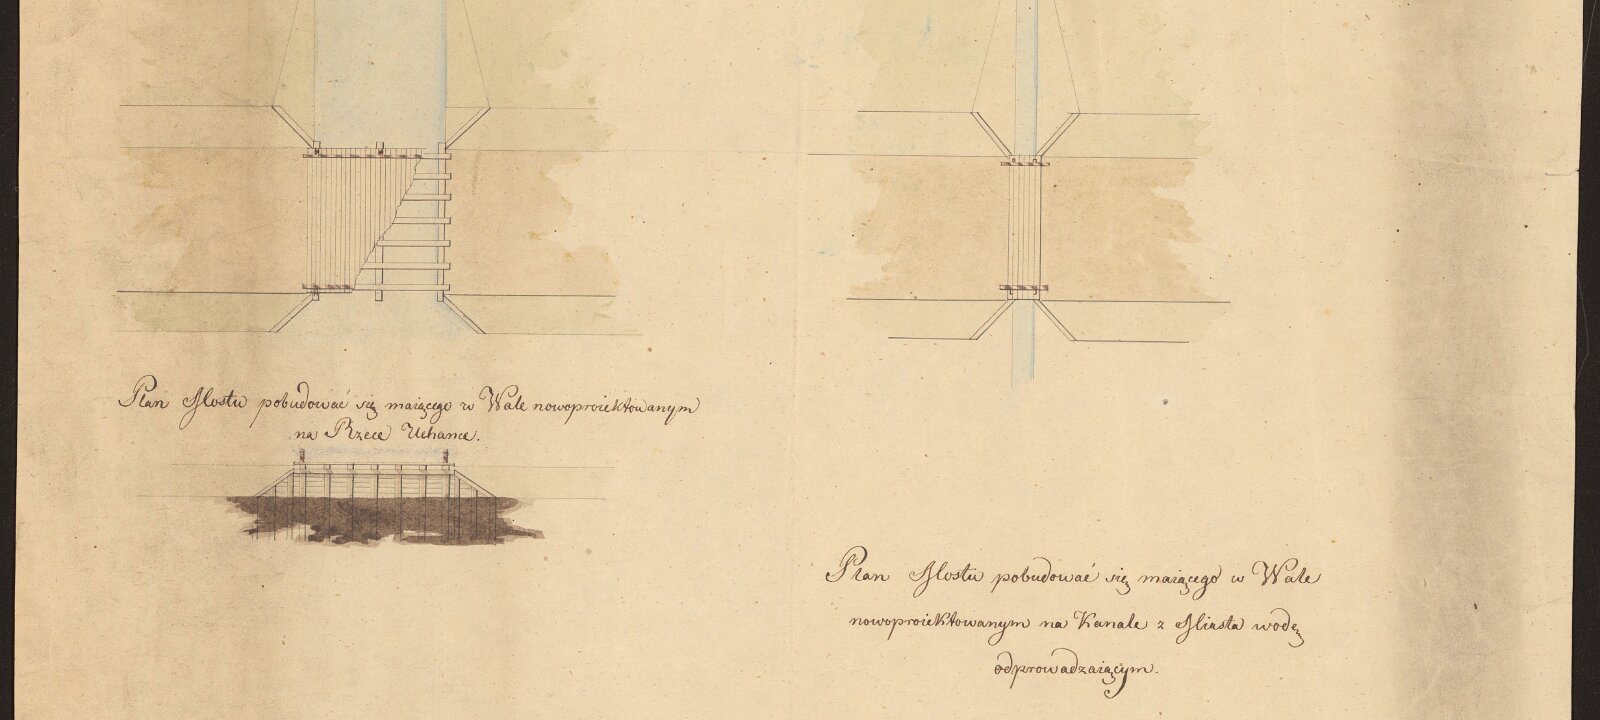 Plan Mostu pobudować się maiącego w Wale nowoproiektowanym
na Rzece Uchance.
Plan Mostu pobudować się maiącego w Wale
nowoproiektowanym na Kanale z Miasta wodę
odprowadzaiącym.